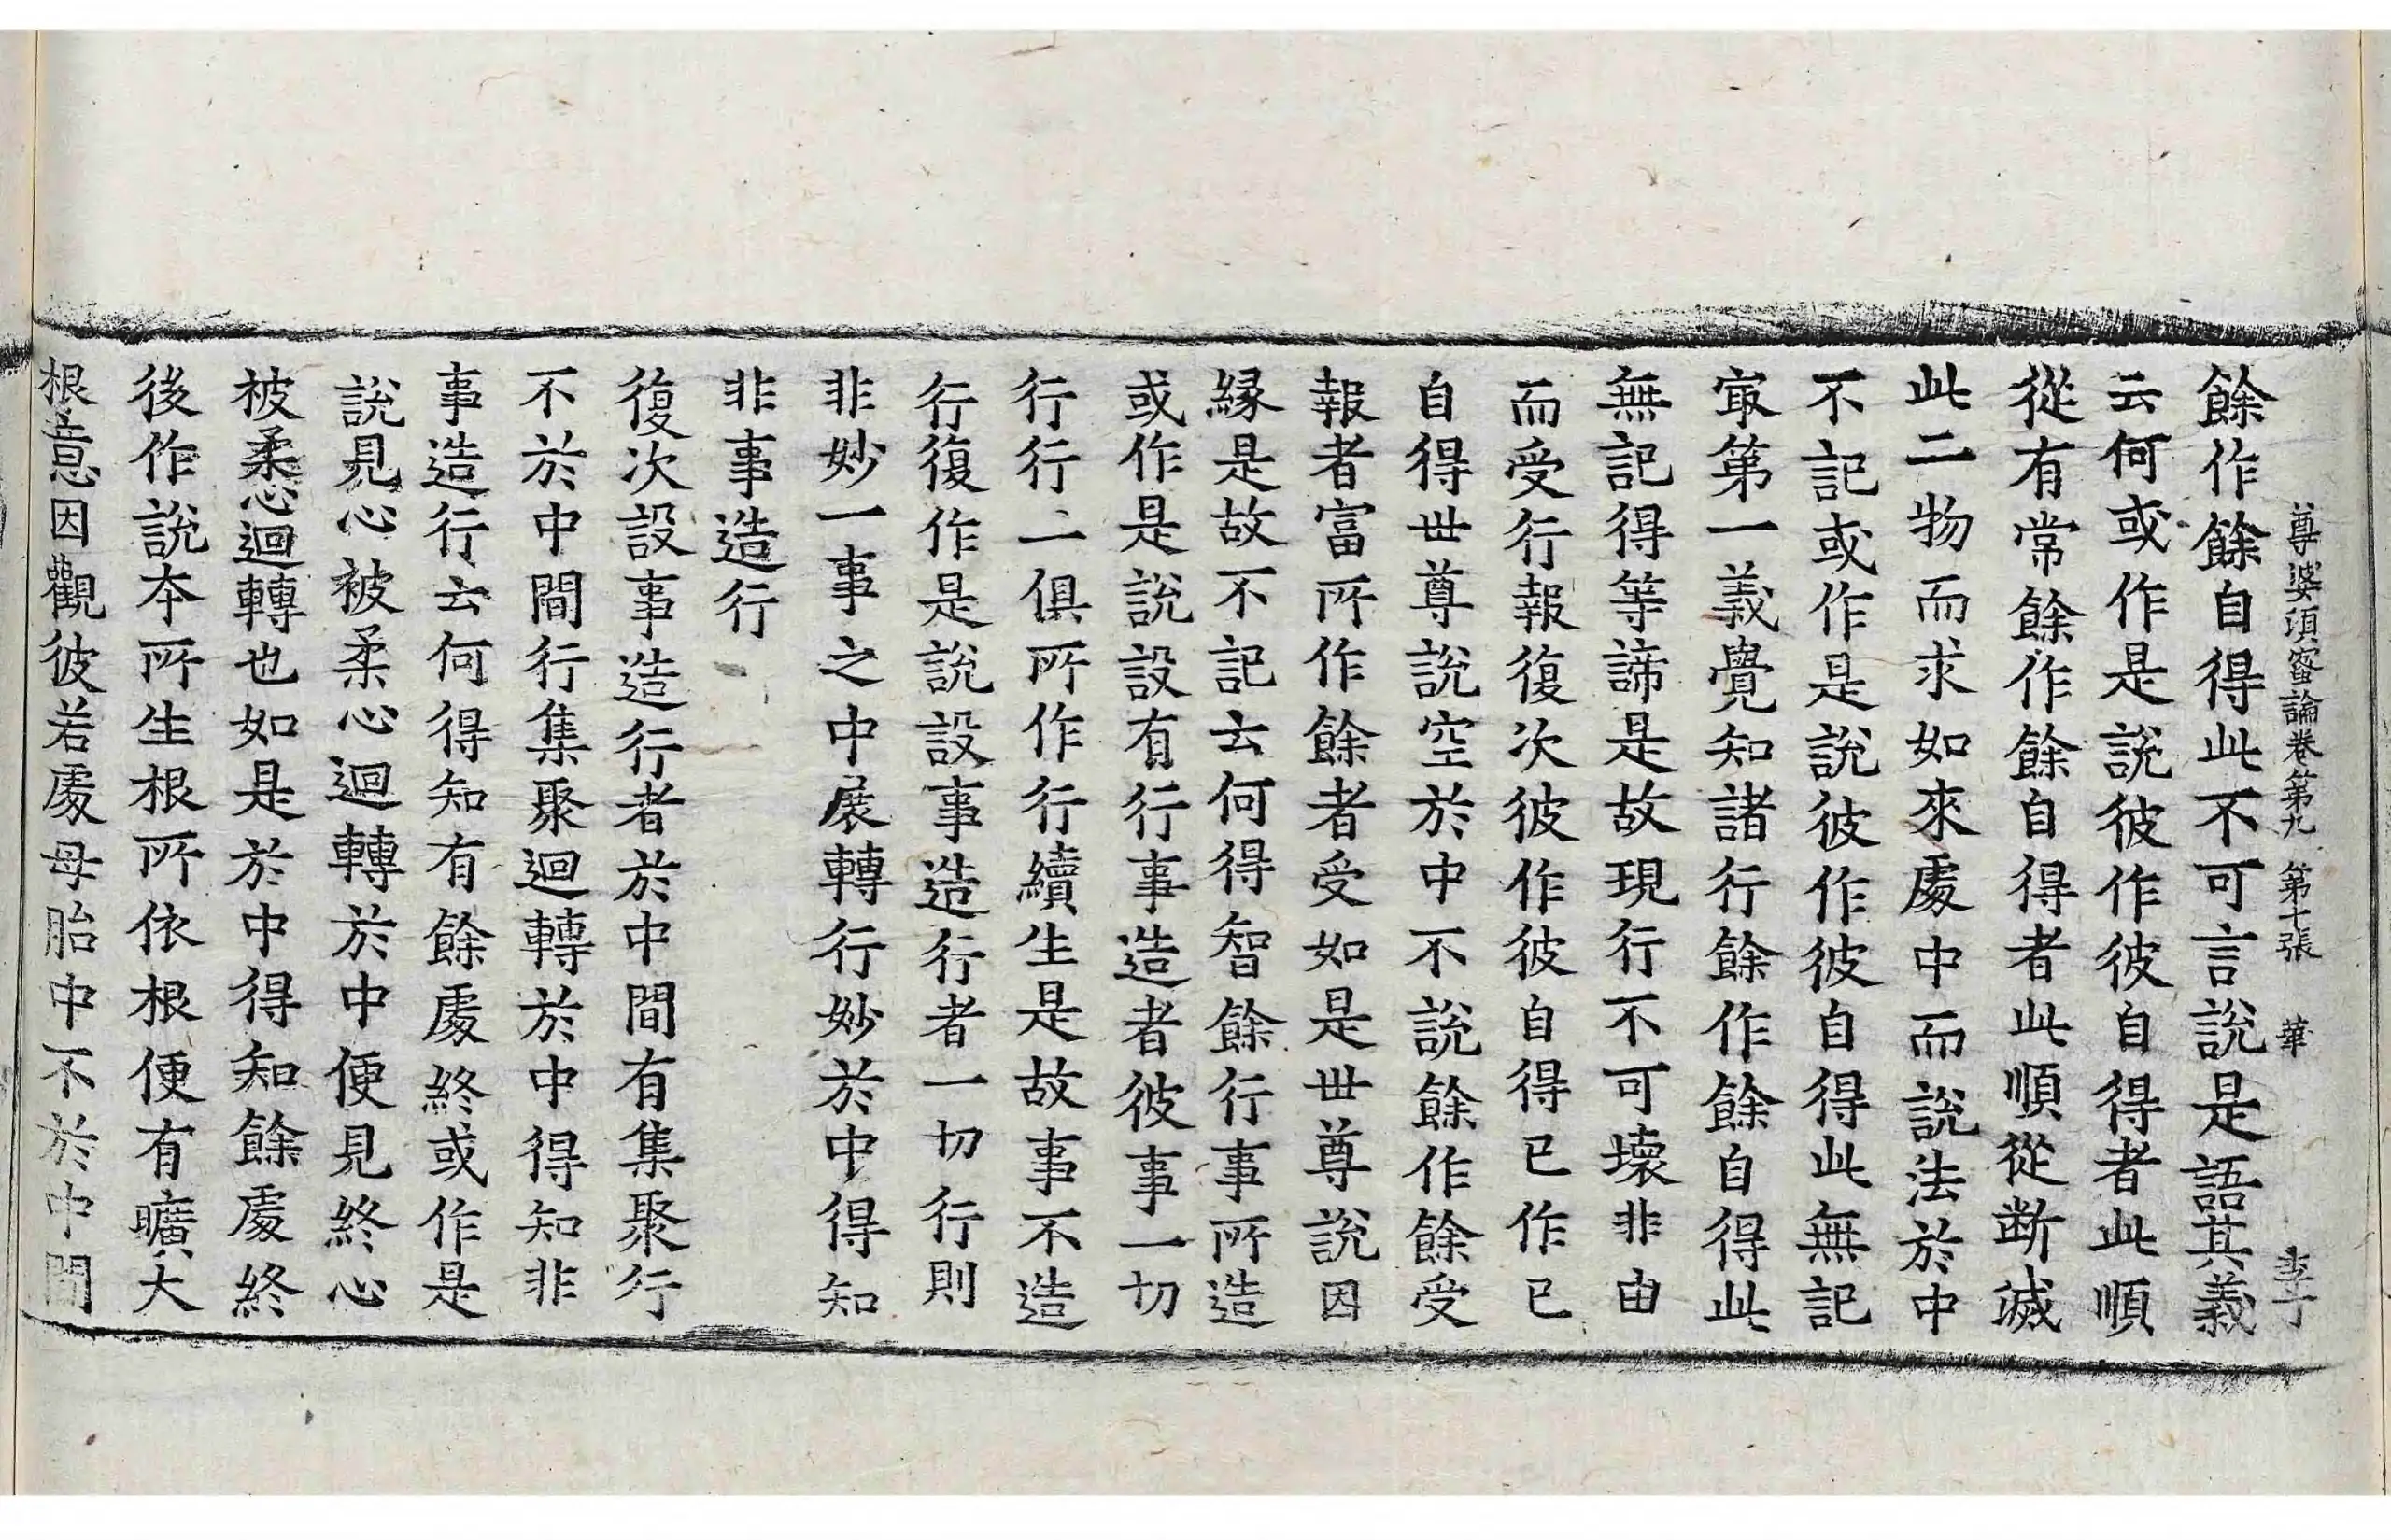 尊婆須蜜論卷第九 第十張 華 李丁
餘作餘自得此不可言說是語其義
云何或作是說彼作彼自得者此順
從有常餘作餘自得者此順從斷滅
此二物而求如來處中而說法於中
不記或作是說彼作彼自得此無記
㝡第一義覺知諸行餘作餘自得此
無記得等諦是故現行不可壞非由
而受行報復次彼作彼自得已作已
自得世尊說空於中不說餘作餘受
報者富所作餘者受如是世尊說因
緣是故不記云何得智餘行事所造
或作是說設有行事造者彼事一切
行行二俱所作行續生是故事不造
行復作是說設事造行者一切行則
非妙一事之中展轉行妙於中得知
非事造行
復次設事造行者於中間有集聚行
不於中間行集聚迴轉於中得知非
事造行云何得知有餘處終或作是
說見心被柔心迴轉於中便見終心
被柔心迴轉也如是於中得知餘處終
後作說本所生根所依根便有曠大
根意因觀彼若處母胎中不於中間